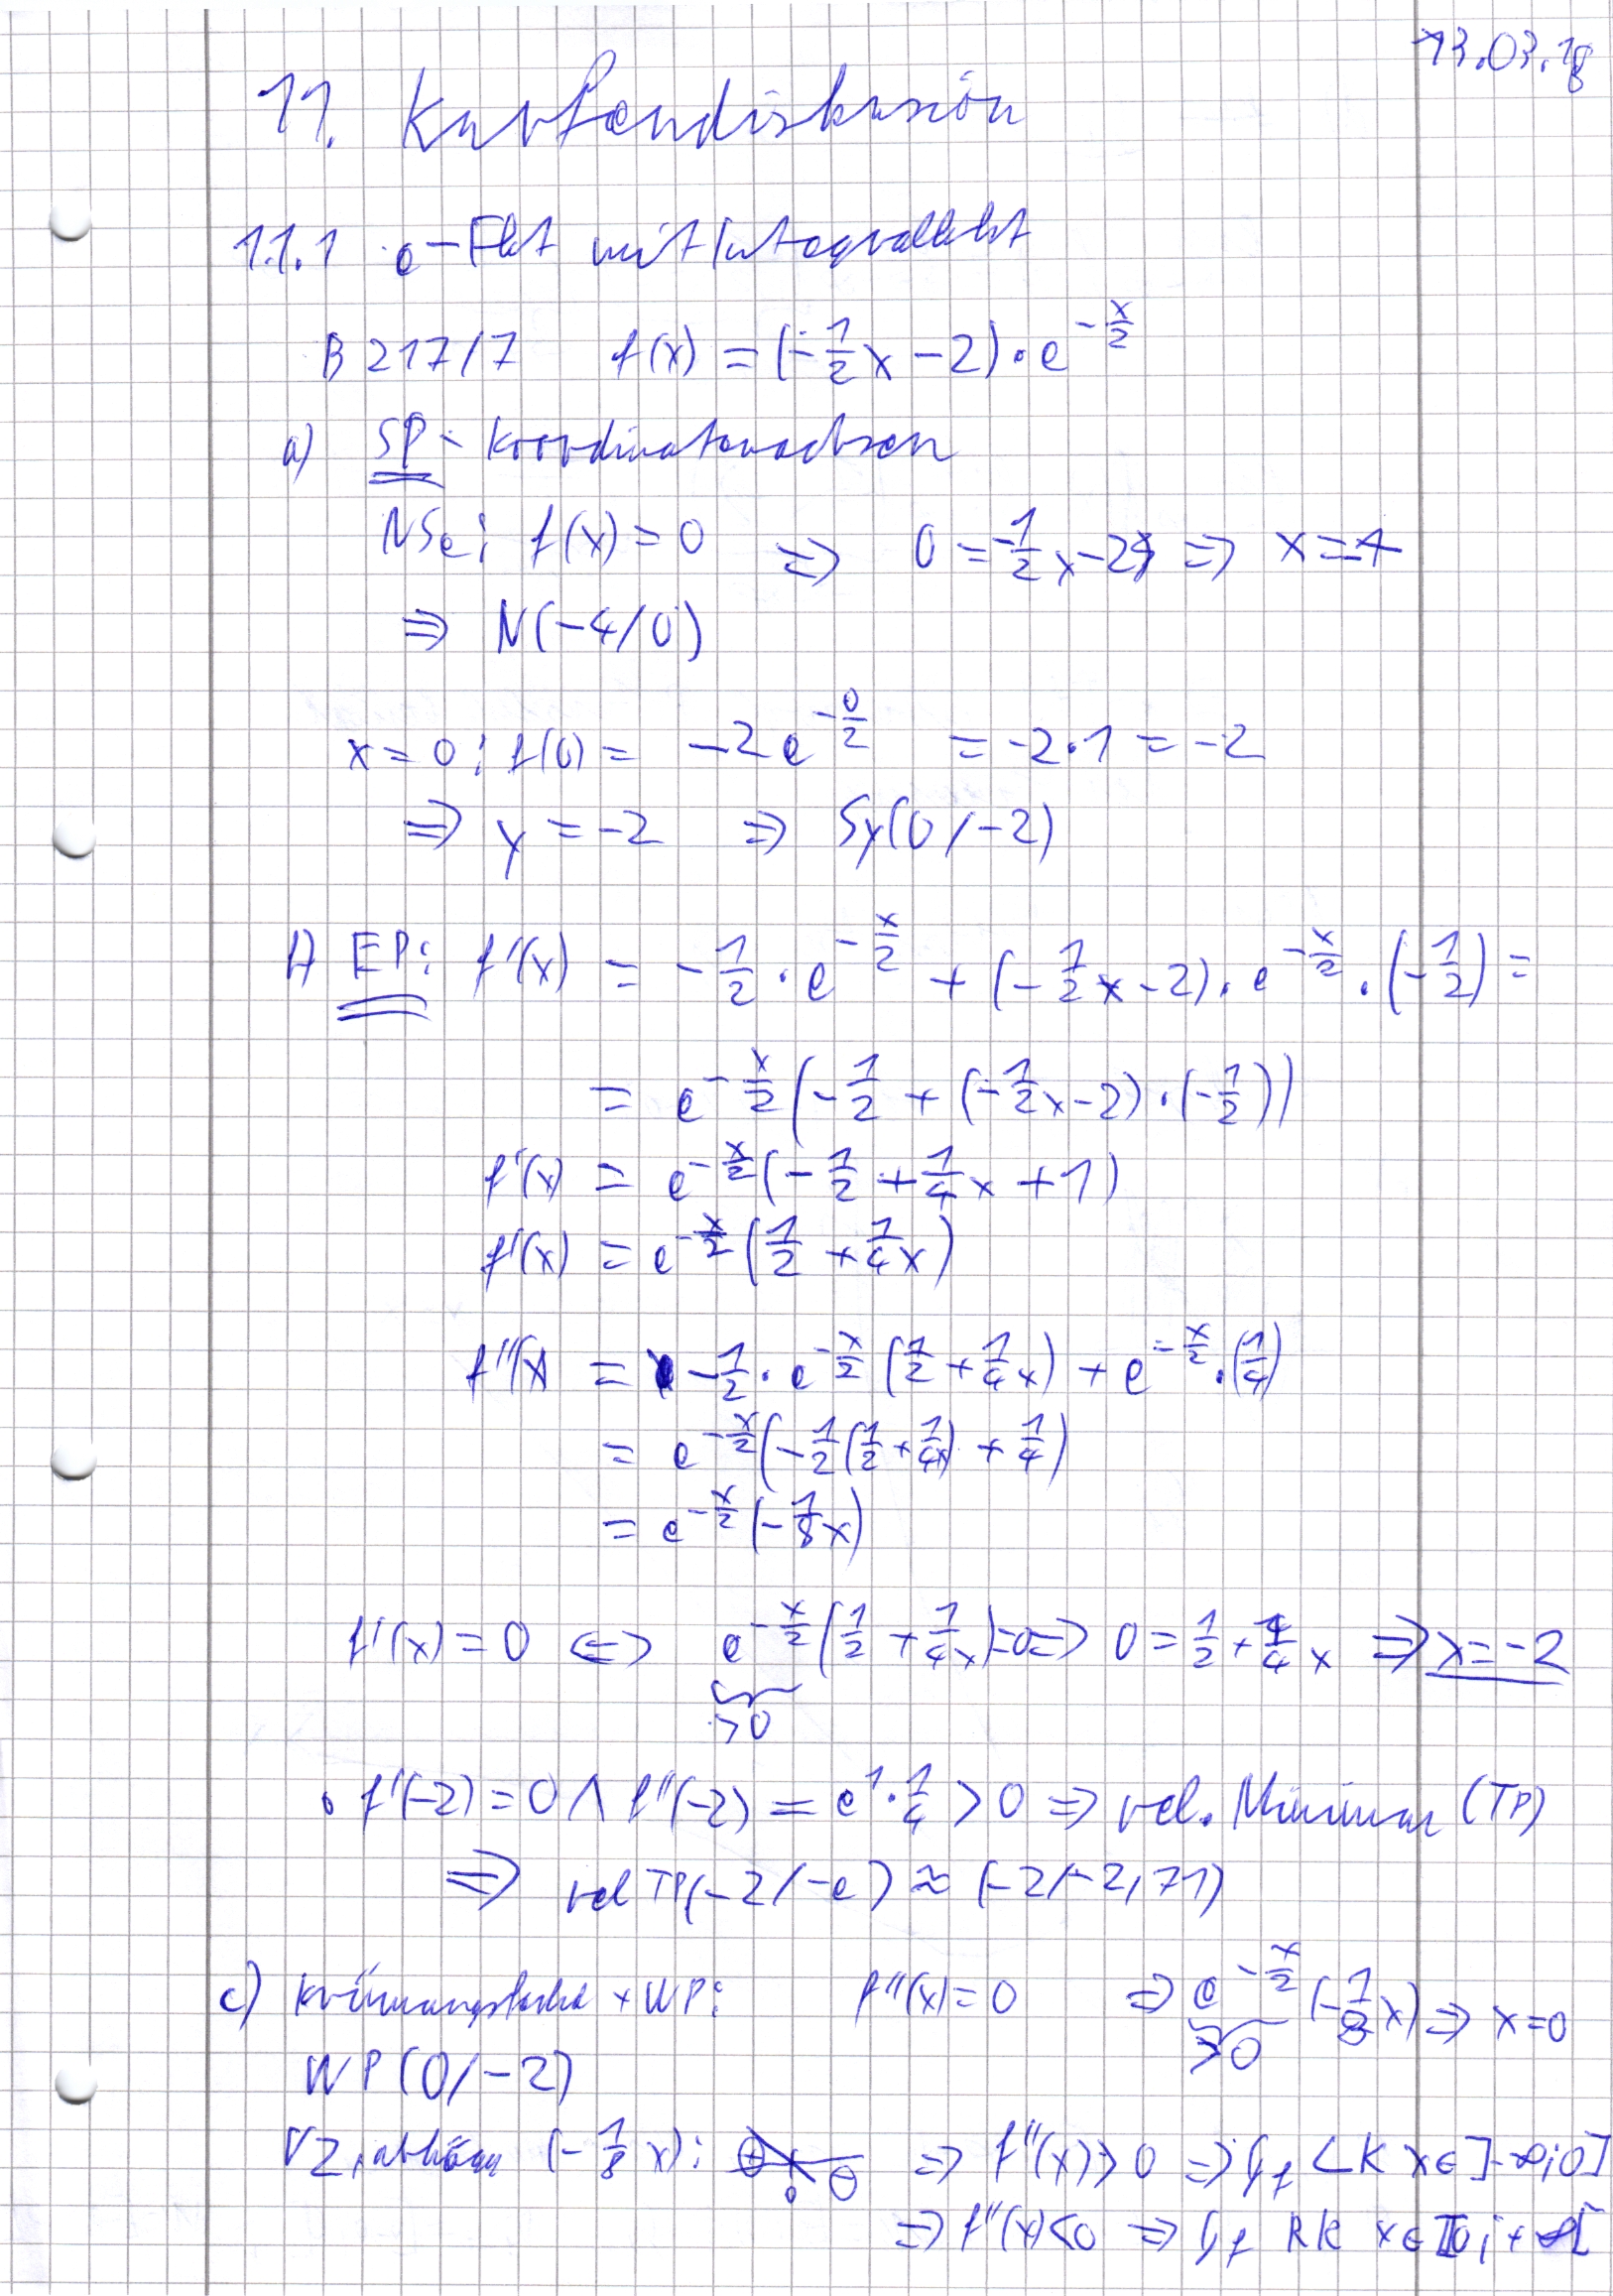 13.03.18
11. Kurvendiskussion
11.1 e-Fkt mit Integralfkt
B 217/7 f(x) = (-1/2 x - 2) · e^(-x/2)
a) SP - Koordinatenachsen
NSe: f(x) = 0 => 0 = -1/2 x - 2 => x = -4
=> N(-4/0)
x = 0: f(0) = -2e^(-0/2) = -2·1 = -2
=> y = -2 => Sy(0/-2)
b) EP: f'(x) = -1/2 · e^(-x/2) + (-1/2 x - 2) · e^(-x/2) · (-1/2) =
= e^(-x/2) (-1/2 + (-1/2 x - 2) · (-1/2))
f'(x) = e^(-x/2) (-1/2 + 1/4 x + 1)
f'(x) = e^(-x/2) (1/2 + 1/4 x)
f''(x) = -1/2 · e^(-x/2) (1/2 + 1/4 x) + e^(-x/2) · (1/4)
= e^(-x/2) (-1/2 (1/2 + 1/4 x) + 1/4)
= e^(-x/2) (-1/8 x)
f'(x) = 0 <=> e^(-x/2) (1/2 + 1/4 x) = 0 => 0 = 1/2 + 1/4 x => x = -2
>0
• f'(-2) = 0 ∧ f''(-2) = e^1 · 1/4 > 0 => rel. Minimum (TP)
=> rel TP(-2/-e) ≈ (-2/-2,71)
c) Krümmungsverh. + WP: f''(x) = 0 => e^(-x/2) (-1/8 x) => x = 0
>0
WP(0/-2)
VZ. abhäng (-1/8 x): ⊕ 0 ⊖ => f''(x) > 0 => Gf LK x ∈ ]-∞;0]
=> f''(x) < 0 => Gf RK x ∈ [0;+∞[